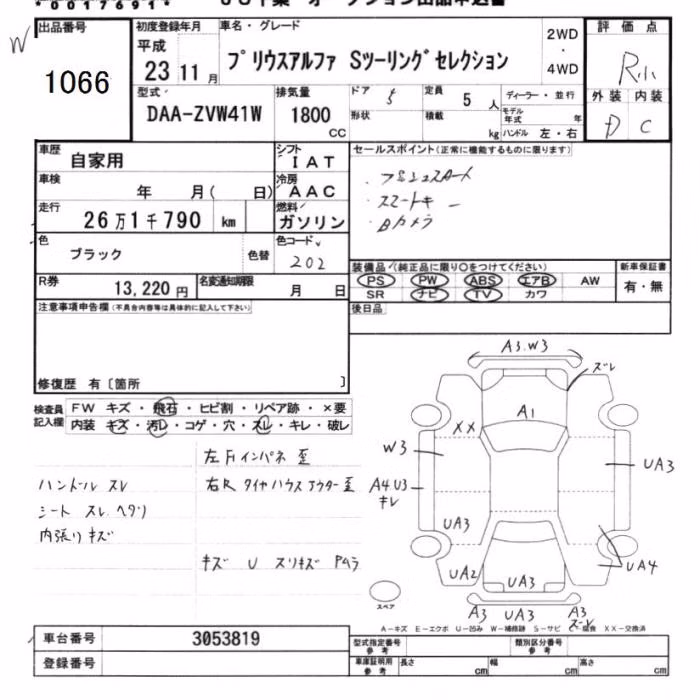 *00176911*
出品番号
1066
初度登録年月
平成
23 11 月
車名・グレード
プリウスアルファ Sツーリングセレクション
2WD
・
4WD
評価点
R小
外装 内装
D C
型式
DAA-ZVW41W
排気量
1800
CC
ドア 5
定員 5 人
ディーラー・並行
形状
積載 kg
モデル年式 年
ハンドル 左・右
車歴
自家用
シフト
IAT
車検
年 月( 日)
冷房
AAC
走行
26万1千790 km
燃料
ガソリン
色
ブラック
色替
色コード
202
R券
13,220円
名変通知期限
月 日
セールスポイント(正常に機能するものに限ります)
・プッシュスタート
・スマートキー
・Bカメラ
装備品(純正品に限り○をつけてください)
PS PW ABS エアB AW
SR ナビ TV カワ
新車保証書
有・無
後日品
注意事項申告欄(不具合内容等は具体的に記入して下さい)
修復歴 有〔箇所 〕
検査員
記入欄
FW キズ・飛石・ヒビ割・リペア跡・×要
内装 キズ・汚レ・コゲ・穴・スレ・キレ・破レ
左Fインパネ 歪
ハンドル スレ
右R タイヤハウス アウター歪
シート スレ ヘタリ
内張り キズ
キズ U スリキズ Pムラ
A3.W3
ズレ
A1
XX
W3
UA3
A4.U3
キレ
UA3
UA2
UA3
UA4
A3 UA3 A3
ズレ
スペア
A-キズ E-エクボ U-凹み W-補修跡 S-サビ C-腐食 XX-交換済
車台番号
3053819
登録番号
型式指定番号
参考
類別区分番号
参考
車庫証明用
参考
長さ cm
幅 cm
高さ cm